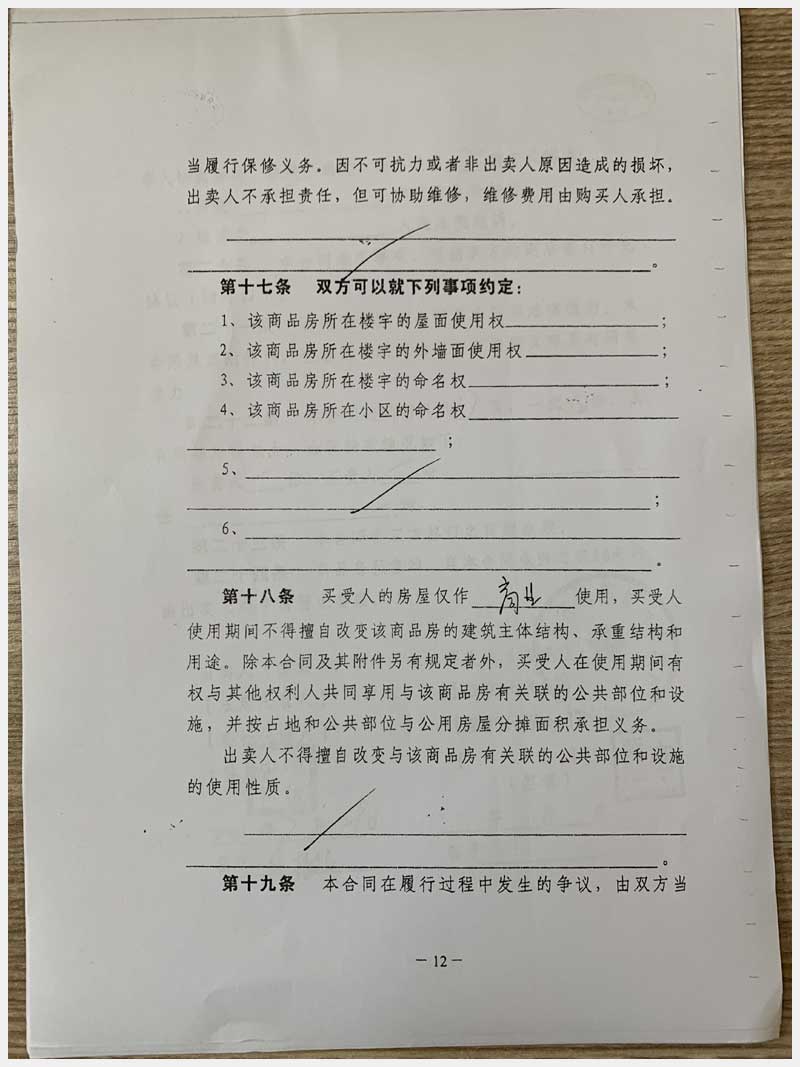 当履行保修义务。因不可抗力或者非出卖人原因造成的损坏，
出卖人不承担责任，但可协助维修，维修费用由购买人承担。
。
第十七条 双方可以就下列事项约定：
1、该商品房所在楼宇的屋面使用权＿＿＿＿＿＿；
2、该商品房所在楼宇的外墙面使用权＿＿＿＿＿；
3、该商品房所在楼宇的命名权＿＿＿＿＿＿＿；
4、该商品房所在小区的命名权＿＿＿＿＿＿＿
；
5、
；
6、
。
第十八条 买受人的房屋仅作 商业 使用，买受人
使用期间不得擅自改变该商品房的建筑主体结构、承重结构和
用途。除本合同及其附件另有规定者外，买受人在使用期间有
权与其他权利人共同享用与该商品房有关联的公共部位和设
施，并按占地和公共部位与公用房屋分摊面积承担义务。
出卖人不得擅自改变与该商品房有关联的公共部位和设施
的使用性质。
。
第十九条 本合同在履行过程中发生的争议，由双方当
－12－